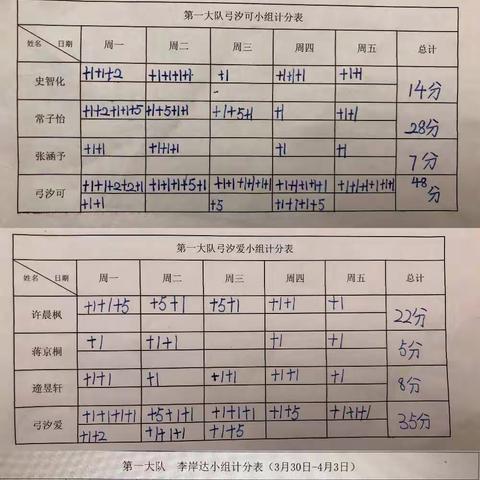 第一大队弓汐可小组计分表
姓名 日期 周一 周二 周三 周四 周五 总计
史智化 +1+1+2 +1+1+1+1 +1 +1+1+1 +1+1 14分
-
常子怡 +1+2+1+1+5 +1+5+1+1 +1+5+1 +1 +1+1 28分
张涵予 +1+1 +1+1+1 +1 +1 7分
弓汐可 +1+1+2+2+1 +1+1+1+5+1 +1+1+1+1+1 +1+1+1+1+1 +1+1+1+1+1 48分
+1+1 +5 +1+1+1+5
第一大队弓汐爱小组计分表
姓名 日期 周一 周二 周三 周四 周五 总计
许晨枫 +1+1+5 +5+1 +5+1 +1+1 +1 22分
蒋京桐 +1 +1+1 +1 +1 5分
昱轩 +1+1 +1 +1+1 +1+1 +1 8分
弓汐爱 +1+1+1+1 +5+1+1 +1+1+1 +1+5 +1+1+1 35分
+1+2 +1+1+1 +1+5
第一大队 李岸达小组计分表（3月30日-4月3日）